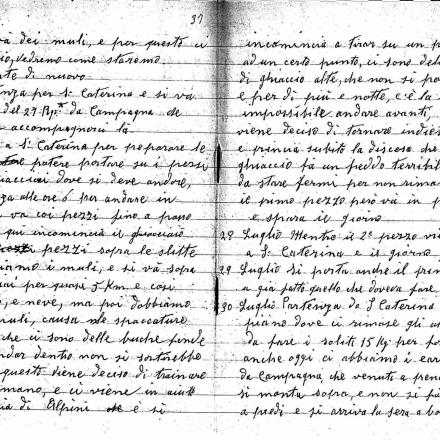 37
va dei muli, e per questo ci
io, vedremo come staremo
te di nuovo
nza per S. Caterina e si va
del 27 da Campagna che
accompagnerà là
a S. Caterina per preparare le
potere portare su i pezzi
iacciai dove si deve andare,
za alle ore 6 per andare in
va coi pezzi fino a
qui incomincia il ghiacciaio
pezzi sopra le slitte
iamo i muli, e si va sopra
iai per quasi 5 Km e così
o, e neve, ma poi dobbiamo
muli, causa le spaccature
che ci sono delle buche
ndar dentro non si sortirebbe
questo viene deciso di trainare
mano, e ci viene in aiuto
ia di Alpini e si
incomincia a tirar su un p
ad un certo punto, ci sono del
di ghiaccio alte, che non si po
e per di più e notte, c'è la
impossibile andare avanti,
viene deciso di tornare indie
e principia subito la discesa che
ghiaccio fà un freddo terribil
da stare fermi per non rima
il primo pezzo però va in p
e spara il giorno
28 Luglio Mentre il 2º pezzo vi
a S. Caterina e il giorno
29 Luglio si porta anche il prim
a già fatti quello che doveva fare
30 Luglio Partenza da S. Caterina
piano dove ci rimase gli al
da fare i soliti 15 Kg per po
anche oggi ci abbiamo i car
da Campagna che venuti a pren
si monta sopra, e non si fà
a piedi e si arriva la sera a bo